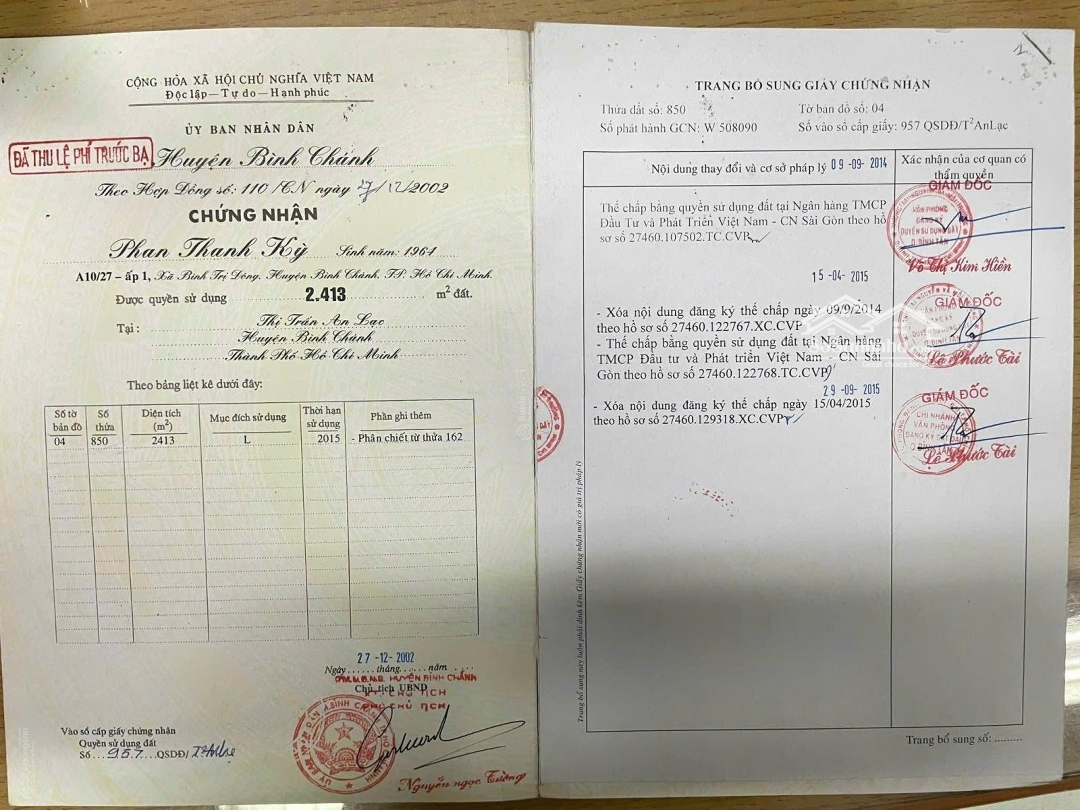 CỘNG HÒA XÃ HỘI CHỦ NGHĨA VIỆT NAM
Độc lập — Tự do — Hạnh phúc
ỦY BAN NHÂN DÂN
ĐÃ THU LỆ PHÍ TRƯỚC BẠ
Huyện Bình Chánh
Theo Hợp Đồng số: 110 /CN ngày 27/12/2002
CHỨNG NHẬN
Phan Thanh Kỳ Sinh năm: 1964
A10/27 – ấp 1, Xã Bình Trị Đông, Huyện Bình Chánh, TP. Hồ Chí Minh.
Được quyền sử dụng 2.413 m² đất.
Tại: Thị Trấn An Lạc
Huyện Bình Chánh
Thành Phố Hồ Chí Minh
Theo bảng liệt kê dưới đây:
Số tờ bản đồ Số thửa Diện tích (m²) Mục đích sử dụng Thời hạn sử dụng Phần ghi thêm
04 850 2413 L 2015 - Phân chiết từ thửa 162
27 -12- 2002
Ngày......tháng......năm ....
TM.U.B.N.D. HUYỆN BÌNH CHÁNH
Chủ tịch UBND
KT. CHỦ TỊCH
PHÓ CHỦ TỊCH
Nguyễn ngọc Tường
Vào sổ cấp giấy chứng nhận
Quyền sử dụng đất
Số 957 QSDĐ/
TRANG BỔ SUNG GIẤY CHỨNG NHẬN
Thửa đất số: 850 Tờ bản đồ số: 04
Số phát hành GCN: W 508090 Số vào sổ cấp giấy: 957 QSDĐ/T²AnLạc
Nội dung thay đổi và cơ sở pháp lý 09 -09- 2014
Xác nhận của cơ quan có thẩm quyền
Thế chấp bằng quyền sử dụng đất tại Ngân hàng TMCP
Đầu Tư và Phát Triển Việt Nam - CN Sài Gòn theo hồ
sơ số 27460.107502.TC.CVP
GIÁM ĐỐC
VĂN PHÒNG
ĐĂNG KÝ
QUYỀN SỬ DỤNG ĐẤT
Q.BÌNH TÂN
Võ Thị Kim Hiền
15 -04- 2015
- Xóa nội dung đăng ký thế chấp ngày 09/9/2014
theo hồ sơ số 27460.122767.XC.CVP
- Thế chấp bằng quyền sử dụng đất tại Ngân hàng
TMCP Đầu tư và Phát triển Việt Nam - CN Sài
Gòn theo hồ sơ số 27460.122768.TC.CVP
GIÁM ĐỐC
Lê Phước Tài
29 -09- 2015
- Xóa nội dung đăng ký thế chấp ngày 15/04/2015
theo hồ sơ số 27460.129318.XC.CVP
GIÁM ĐỐC
CHI NHÁNH
VĂN PHÒNG
ĐĂNG KÝ ĐẤT ĐAI
Q.BÌNH TÂN
Lê Phước Tài
Trang bổ sung này luôn phải đính kèm Giấy chứng nhận mới có giá trị pháp lý
Trang bổ sung số: .........